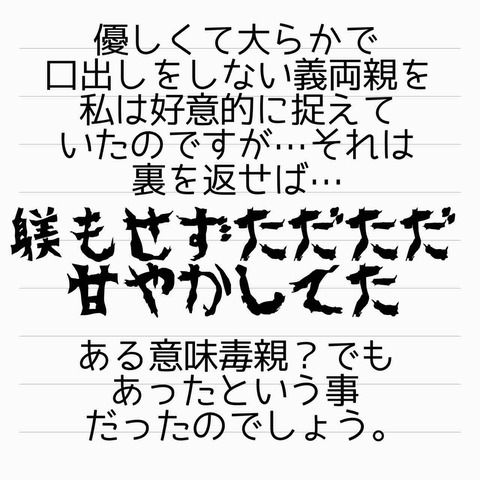 優しくて大らかで
口出しをしない義両親を
私は好意的に捉えて
いたのですが…それは
裏を返せば…
躾もせずただただ
甘やかしてた
ある意味毒親？でも
あったという事
だったのでしょう。